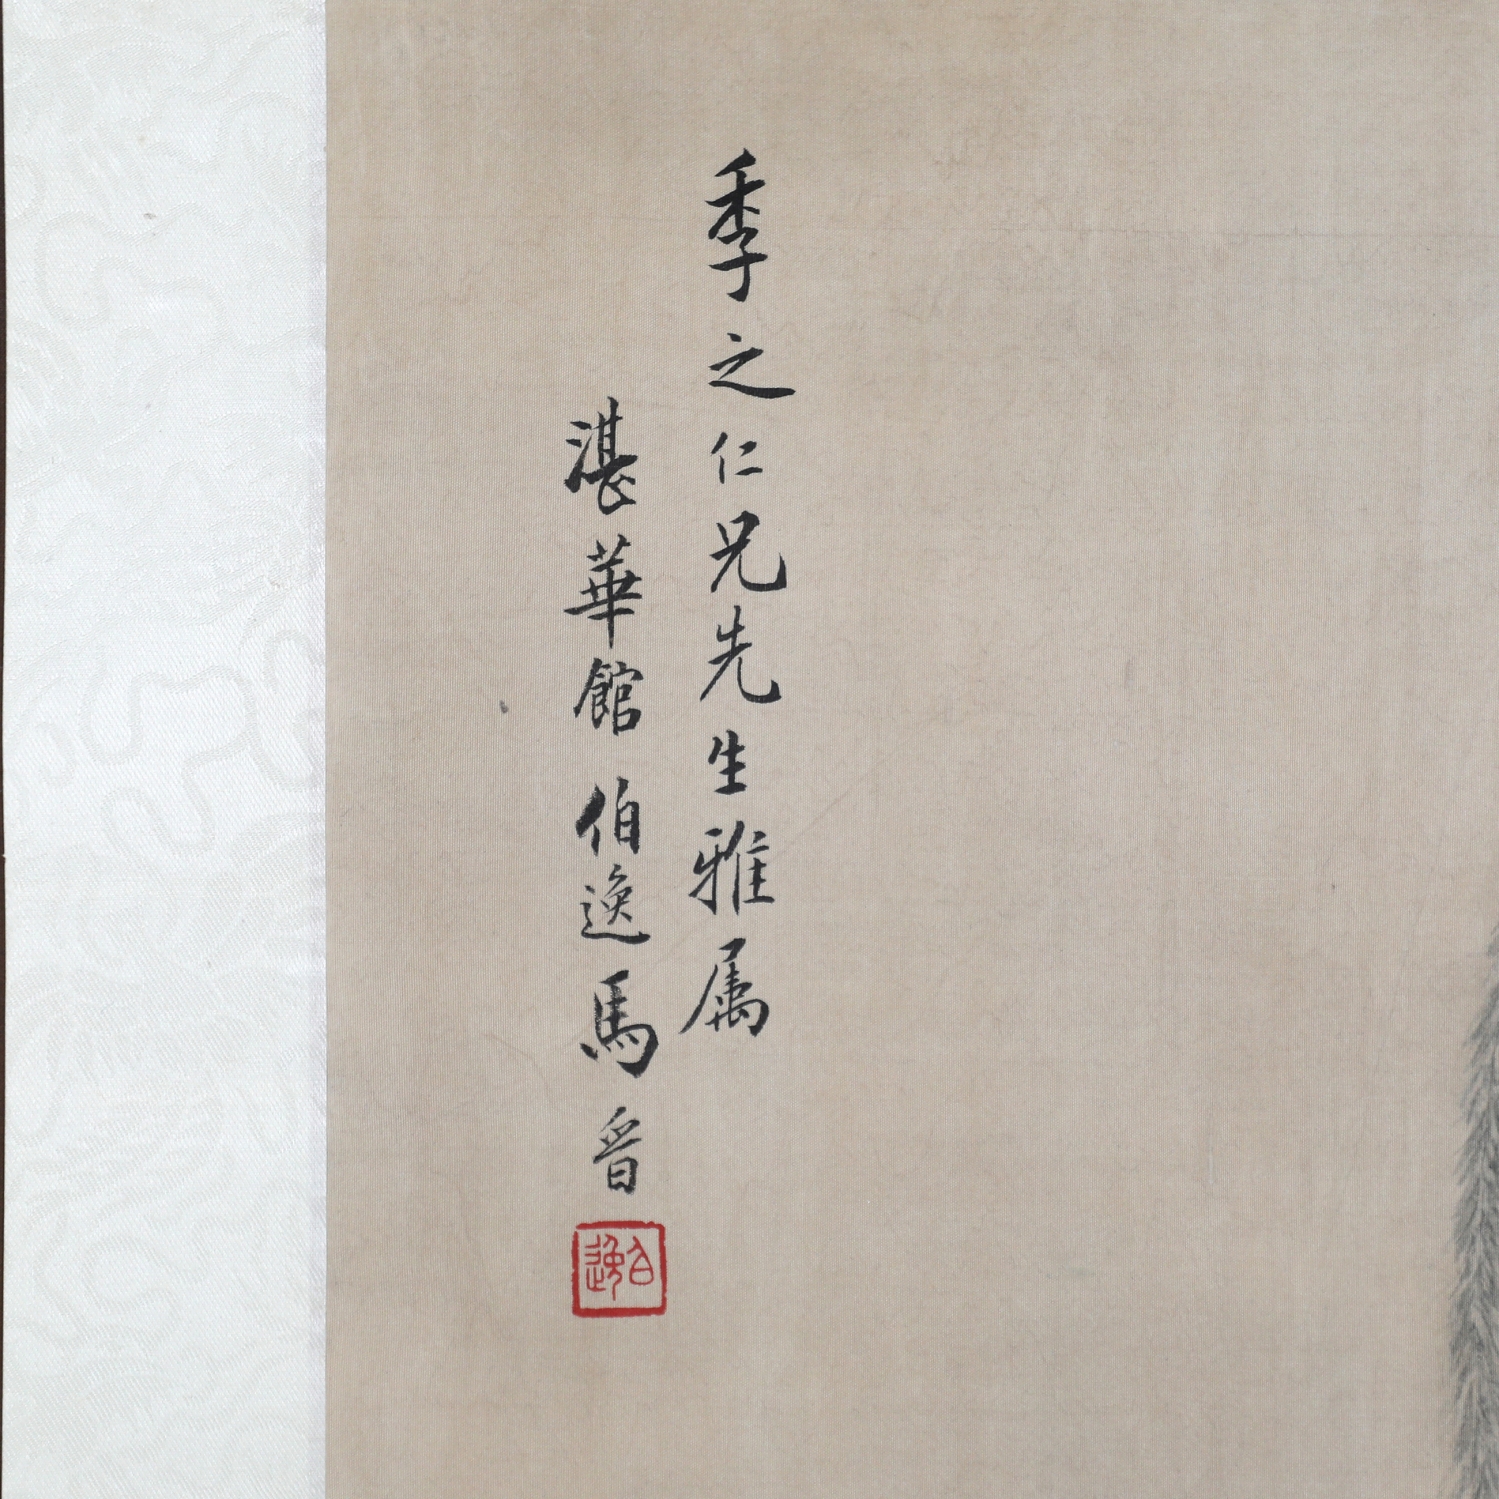 季之仁兄先生雅属
湛華館伯逸馬晉
白逸